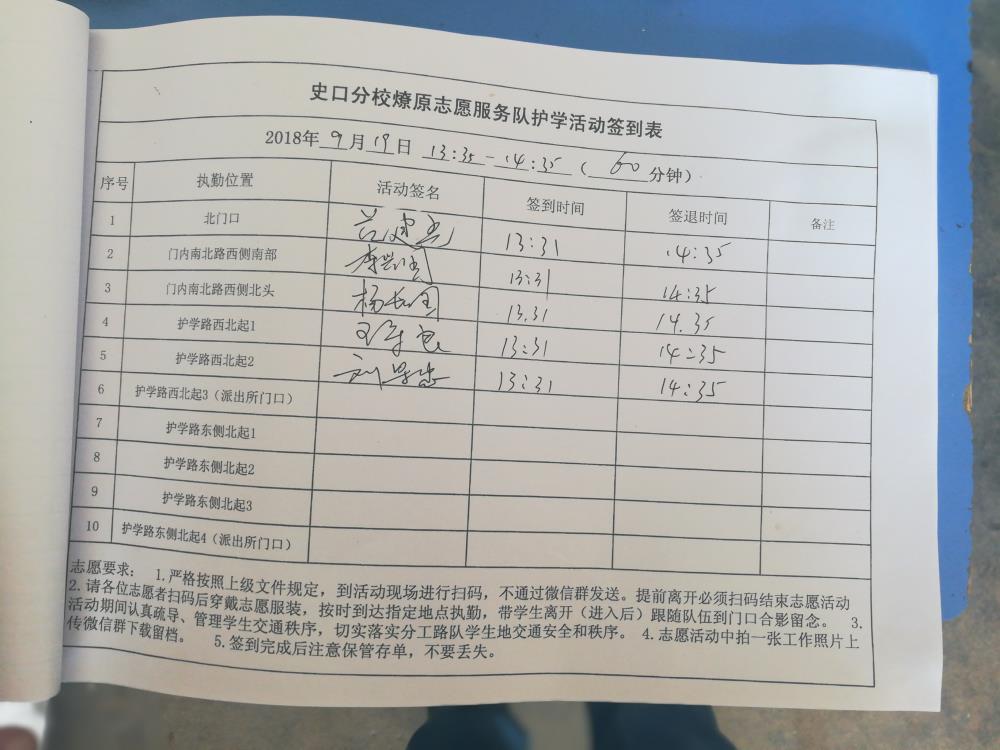 史口分校燎原志愿服务队护学活动签到表
2018年9月19日 13:35-14:35（60分钟）
序号 执勤位置 活动签名 签到时间 签退时间 备注
1 北门口 13:31 14:35
2 门内南北路西侧南部 13:31 14:35
3 门内南北路西侧北头 13.31 14.35
4 护学路西北起1 13:31 14:35
5 护学路西北起2 13:31 14:35
6 护学路西北起3（派出所门口）
7 护学路东侧北起1
8 护学路东侧北起2
9 护学路东侧北起3
10 护学路东侧北起4（派出所门口）
志愿要求： 1.严格按照上级文件规定，到活动现场进行扫码，不通过微信群发送。提前离开必须扫码结束志愿活动
2.请各位志愿者扫码后穿戴志愿服装，按时到达指定地点执勤，带学生离开（进入后）跟随队伍到门口合影留念。 3.
活动期间认真疏导、管理学生交通秩序，切实落实分工路队学生地交通安全和秩序。 4.志愿活动中拍一张工作照片上
传微信群下载留档。 5.签到完成后注意保管存单，不要丢失。